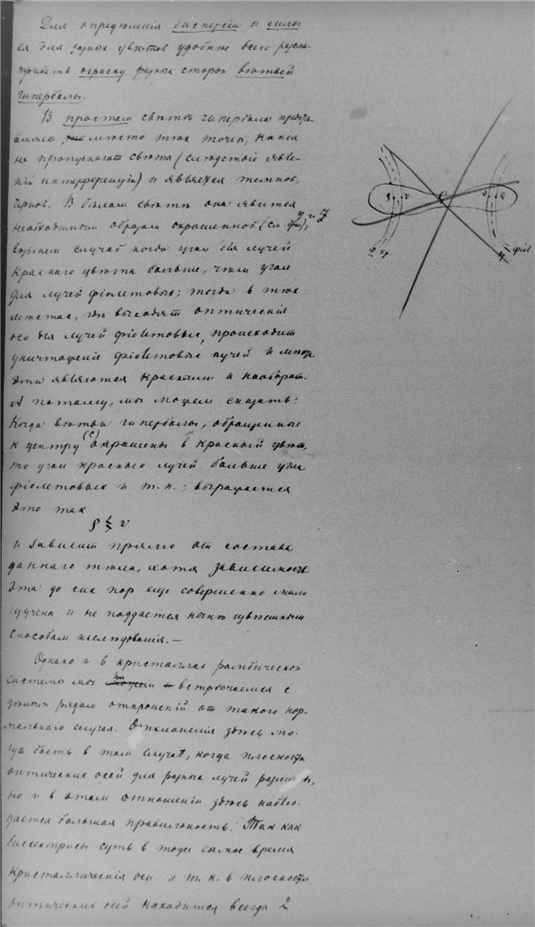 Для определенія дисперсіи и силы
ея для разныхъ цвѣтовъ удобнѣе всего разсма-
тривать окраску разныхъ сторон вѣтвей
гиперболы.
В простомъ свѣтѣ гипербола
мѣсто тѣхъ точекъ, какія
не пропускаютъ свѣта (слѣдствіе явле-
ній интерференціи) и является темною,
черной. В бѣломъ свѣтѣ она явится
необходимымъ образомъ окрашенной (см. фиг),
возьмемъ случай когда уголъ для лучей
краснаго цвѣта больше, чѣмъ уголъ
для лучей фіолетовыхъ; тогда в тѣхъ
мѣстахъ, гдѣ выходятъ оптическія
оси для лучей фіолетовыхъ, происходитъ
уничтоженіе фіолетовыхъ лучей и
являются красными и наоборотъ.
А потому, мы можемъ сказать:
Когда вѣтви гиперболы, обращенныя
к центру (с) окрашены в красный цвѣтъ,
то уголъ красныхъ лучей больше угла
фіолетовыхъ и т. п.; выражается
это такъ
ρ ≶ v
и зависитъ прямо отъ состава
даннаго тѣла, хотя зависимость
эта до сих пор еще совершенно мало
изучена и не поддается
способамъ изслѣдованія. —
Однако и в кристаллахъ ромбической
системы мы встрѣчаемся с
цѣлымъ рядомъ отклоненій отъ такого нор-
мальнаго случая. Отклоненія здѣсь мо-
гутъ быть в томъ случаѣ, когда плоскости
оптическихъ осей для разныхъ лучей различны,
но и в этомъ отношеніи здѣсь наблю-
дается большая правильность. Такъ какъ
биссектрисы суть в тоже самое время
кристаллическія оси и т. к. в плоскости
оптическихъ осей находится всегда 2